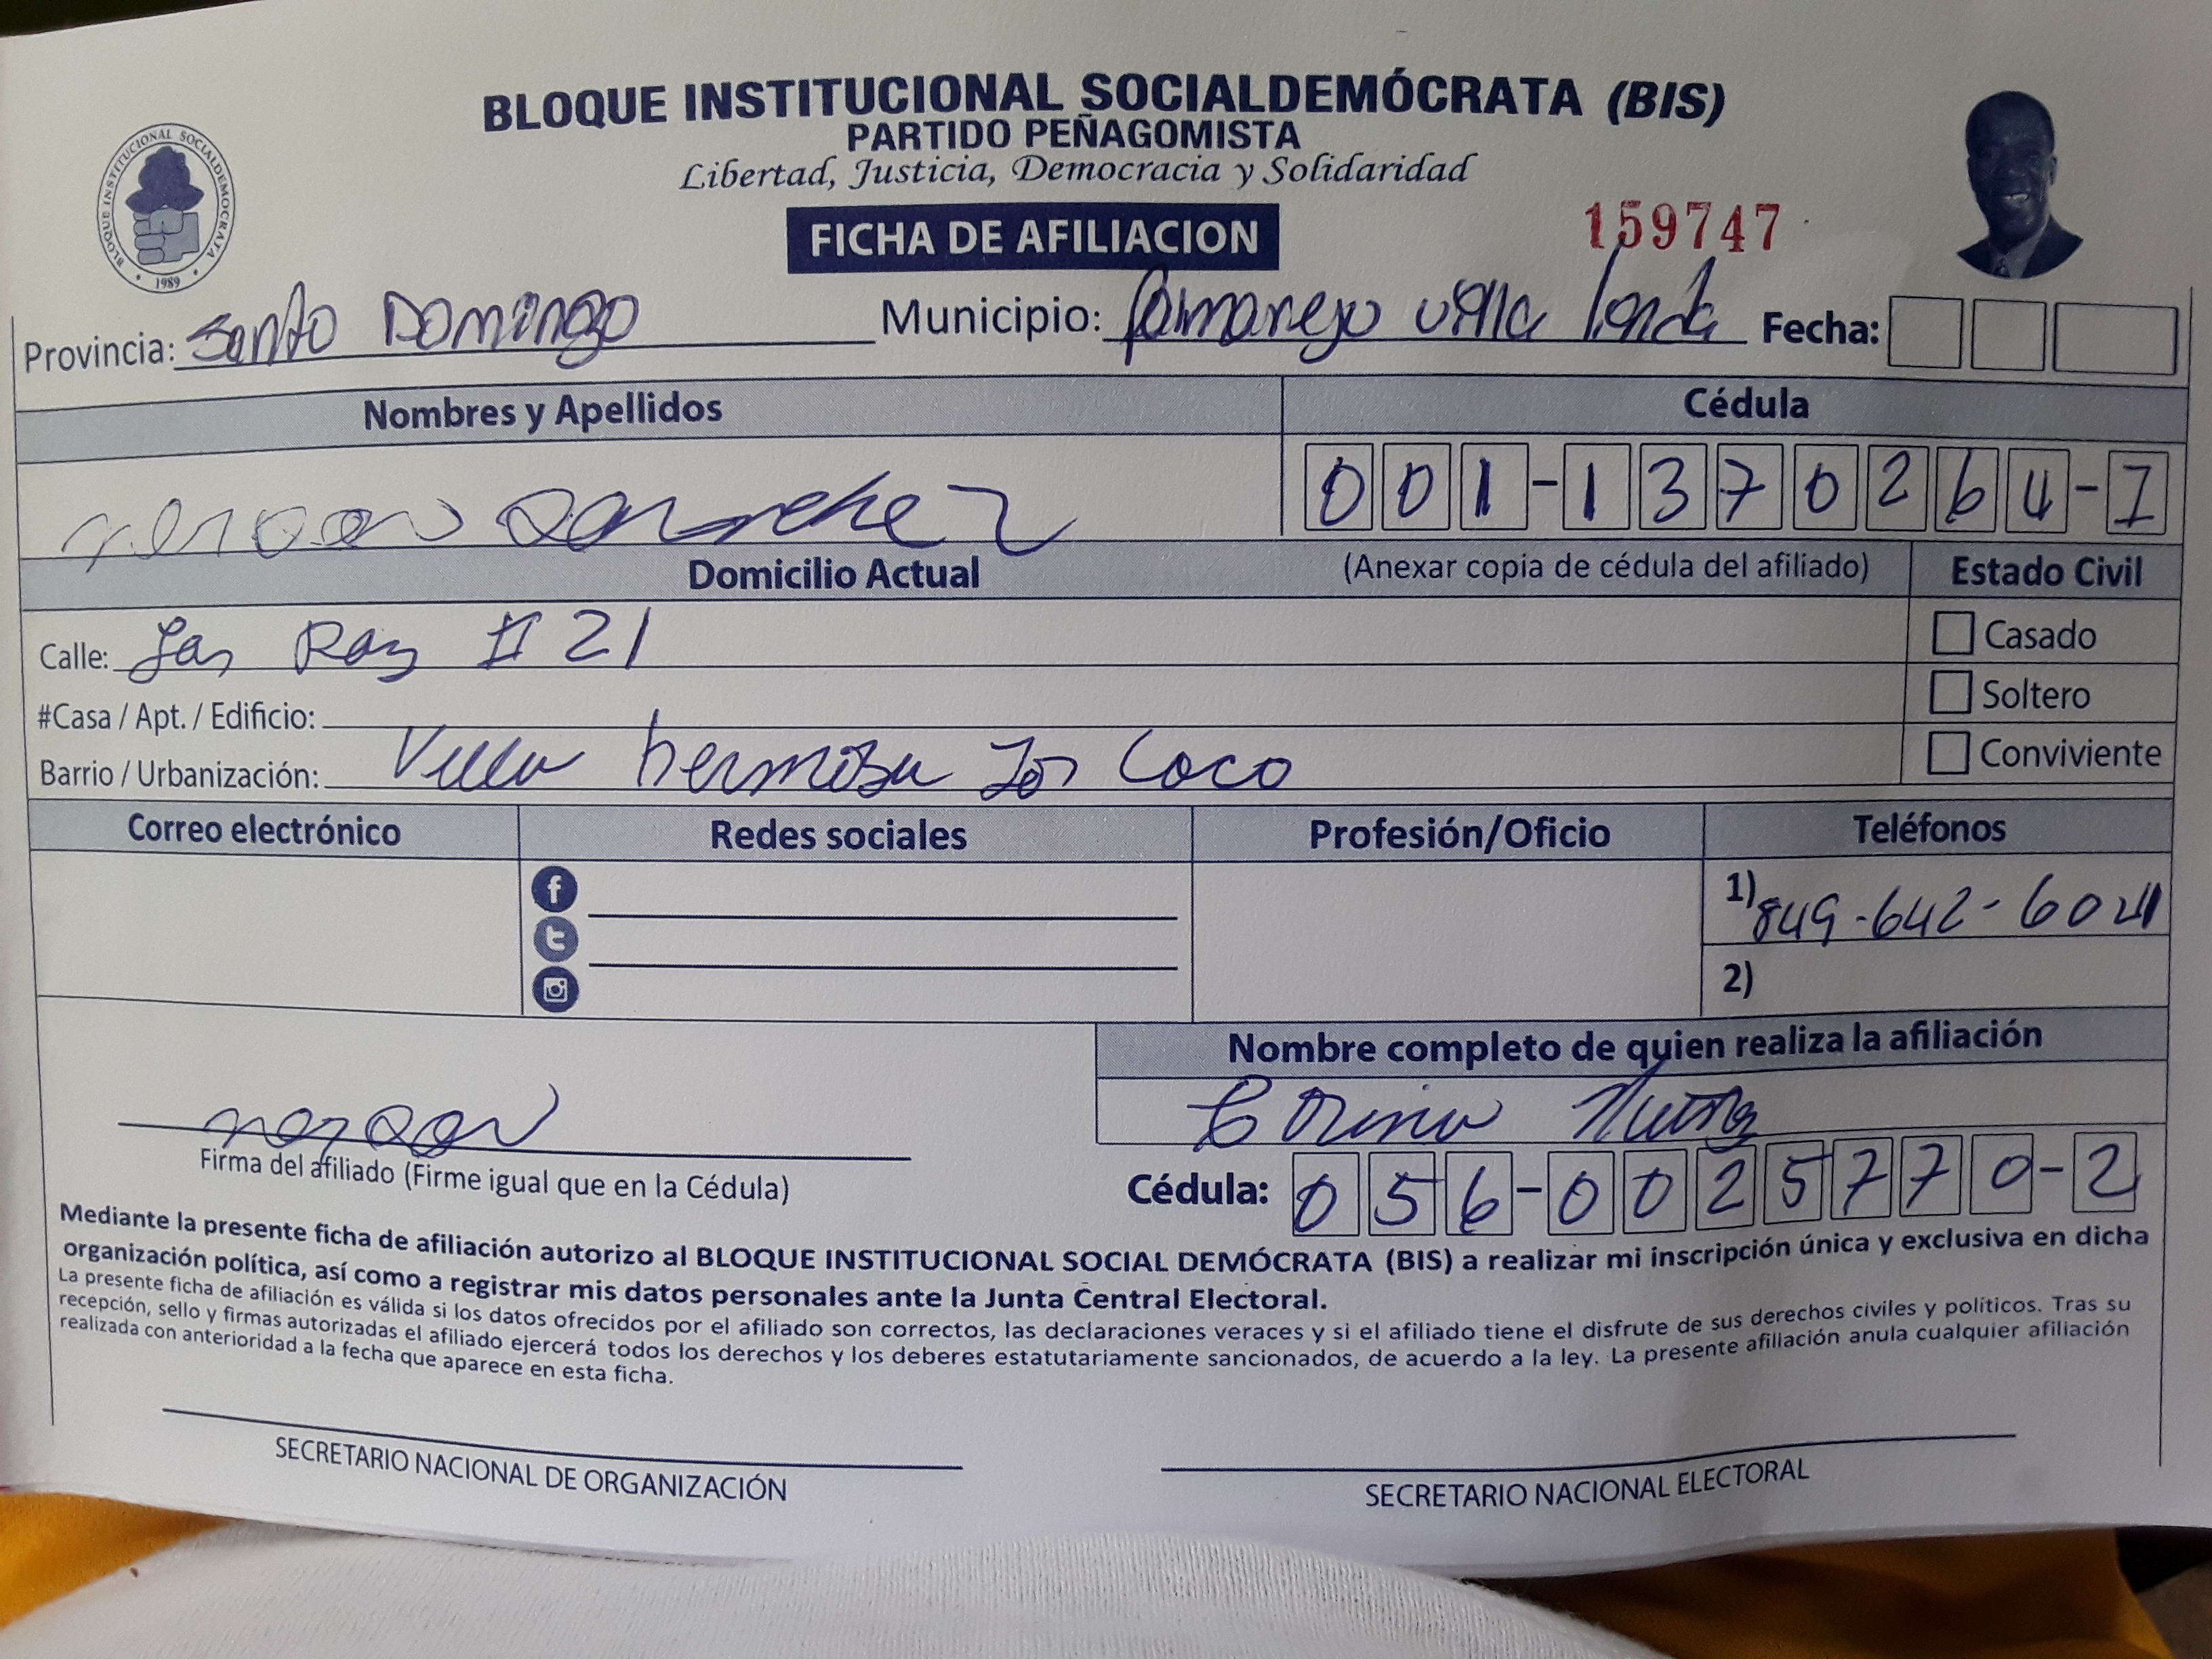 BLOQUE INSTITUCIONAL SOCIALDEMÓCRATA (BIS)
PARTIDO PEÑAGOMISTA
Libertad, Justicia, Democracia y Solidaridad
BLOQUE INSTITUCIONAL SOCIALDEMOCRATA
1989
FICHA DE AFILIACION
159747
Provincia: Santo Domingo Municipio: villa Fecha:
Nombres y Apellidos Cédula
Sanchez 001-1370264-1
Domicilio Actual (Anexar copia de cédula del afiliado) Estado Civil
Calle: # 21 Casado
#Casa / Apt. / Edificio: Soltero
Barrio / Urbanización: Villa hermosa Los Coco Conviviente
Correo electrónico Redes sociales Profesión/Oficio Teléfonos
1) 849-642-6021
2)
Nombre completo de quien realiza la afiliación
Firma del afiliado (Firme igual que en la Cédula)
Cédula: 056-0025770-2
Mediante la presente ficha de afiliación autorizo al BLOQUE INSTITUCIONAL SOCIAL DEMÓCRATA (BIS) a realizar mi inscripción única y exclusiva en dicha
organización política, así como a registrar mis datos personales ante la Junta Central Electoral.
La presente ficha de afiliación es válida si los datos ofrecidos por el afiliado son correctos, las declaraciones veraces y si el afiliado tiene el disfrute de sus derechos civiles y políticos. Tras su
recepción, sello y firmas autorizadas el afiliado ejercerá todos los derechos y los deberes estatutariamente sancionados, de acuerdo a la ley. La presente afiliación anula cualquier afiliación
realizada con anterioridad a la fecha que aparece en esta ficha.
SECRETARIO NACIONAL DE ORGANIZACIÓN
SECRETARIO NACIONAL ELECTORAL